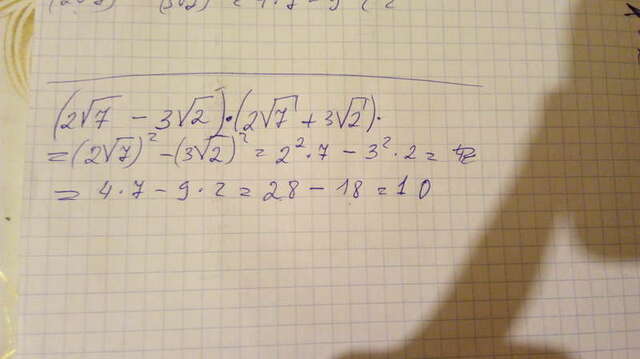 (2√7 - 3√2)·(2√7 + 3√2)·
=(2√7)² -(3√2)² = 2²·7 - 3²·2 =
= 4·7 - 9·2 = 28 - 18 = 10